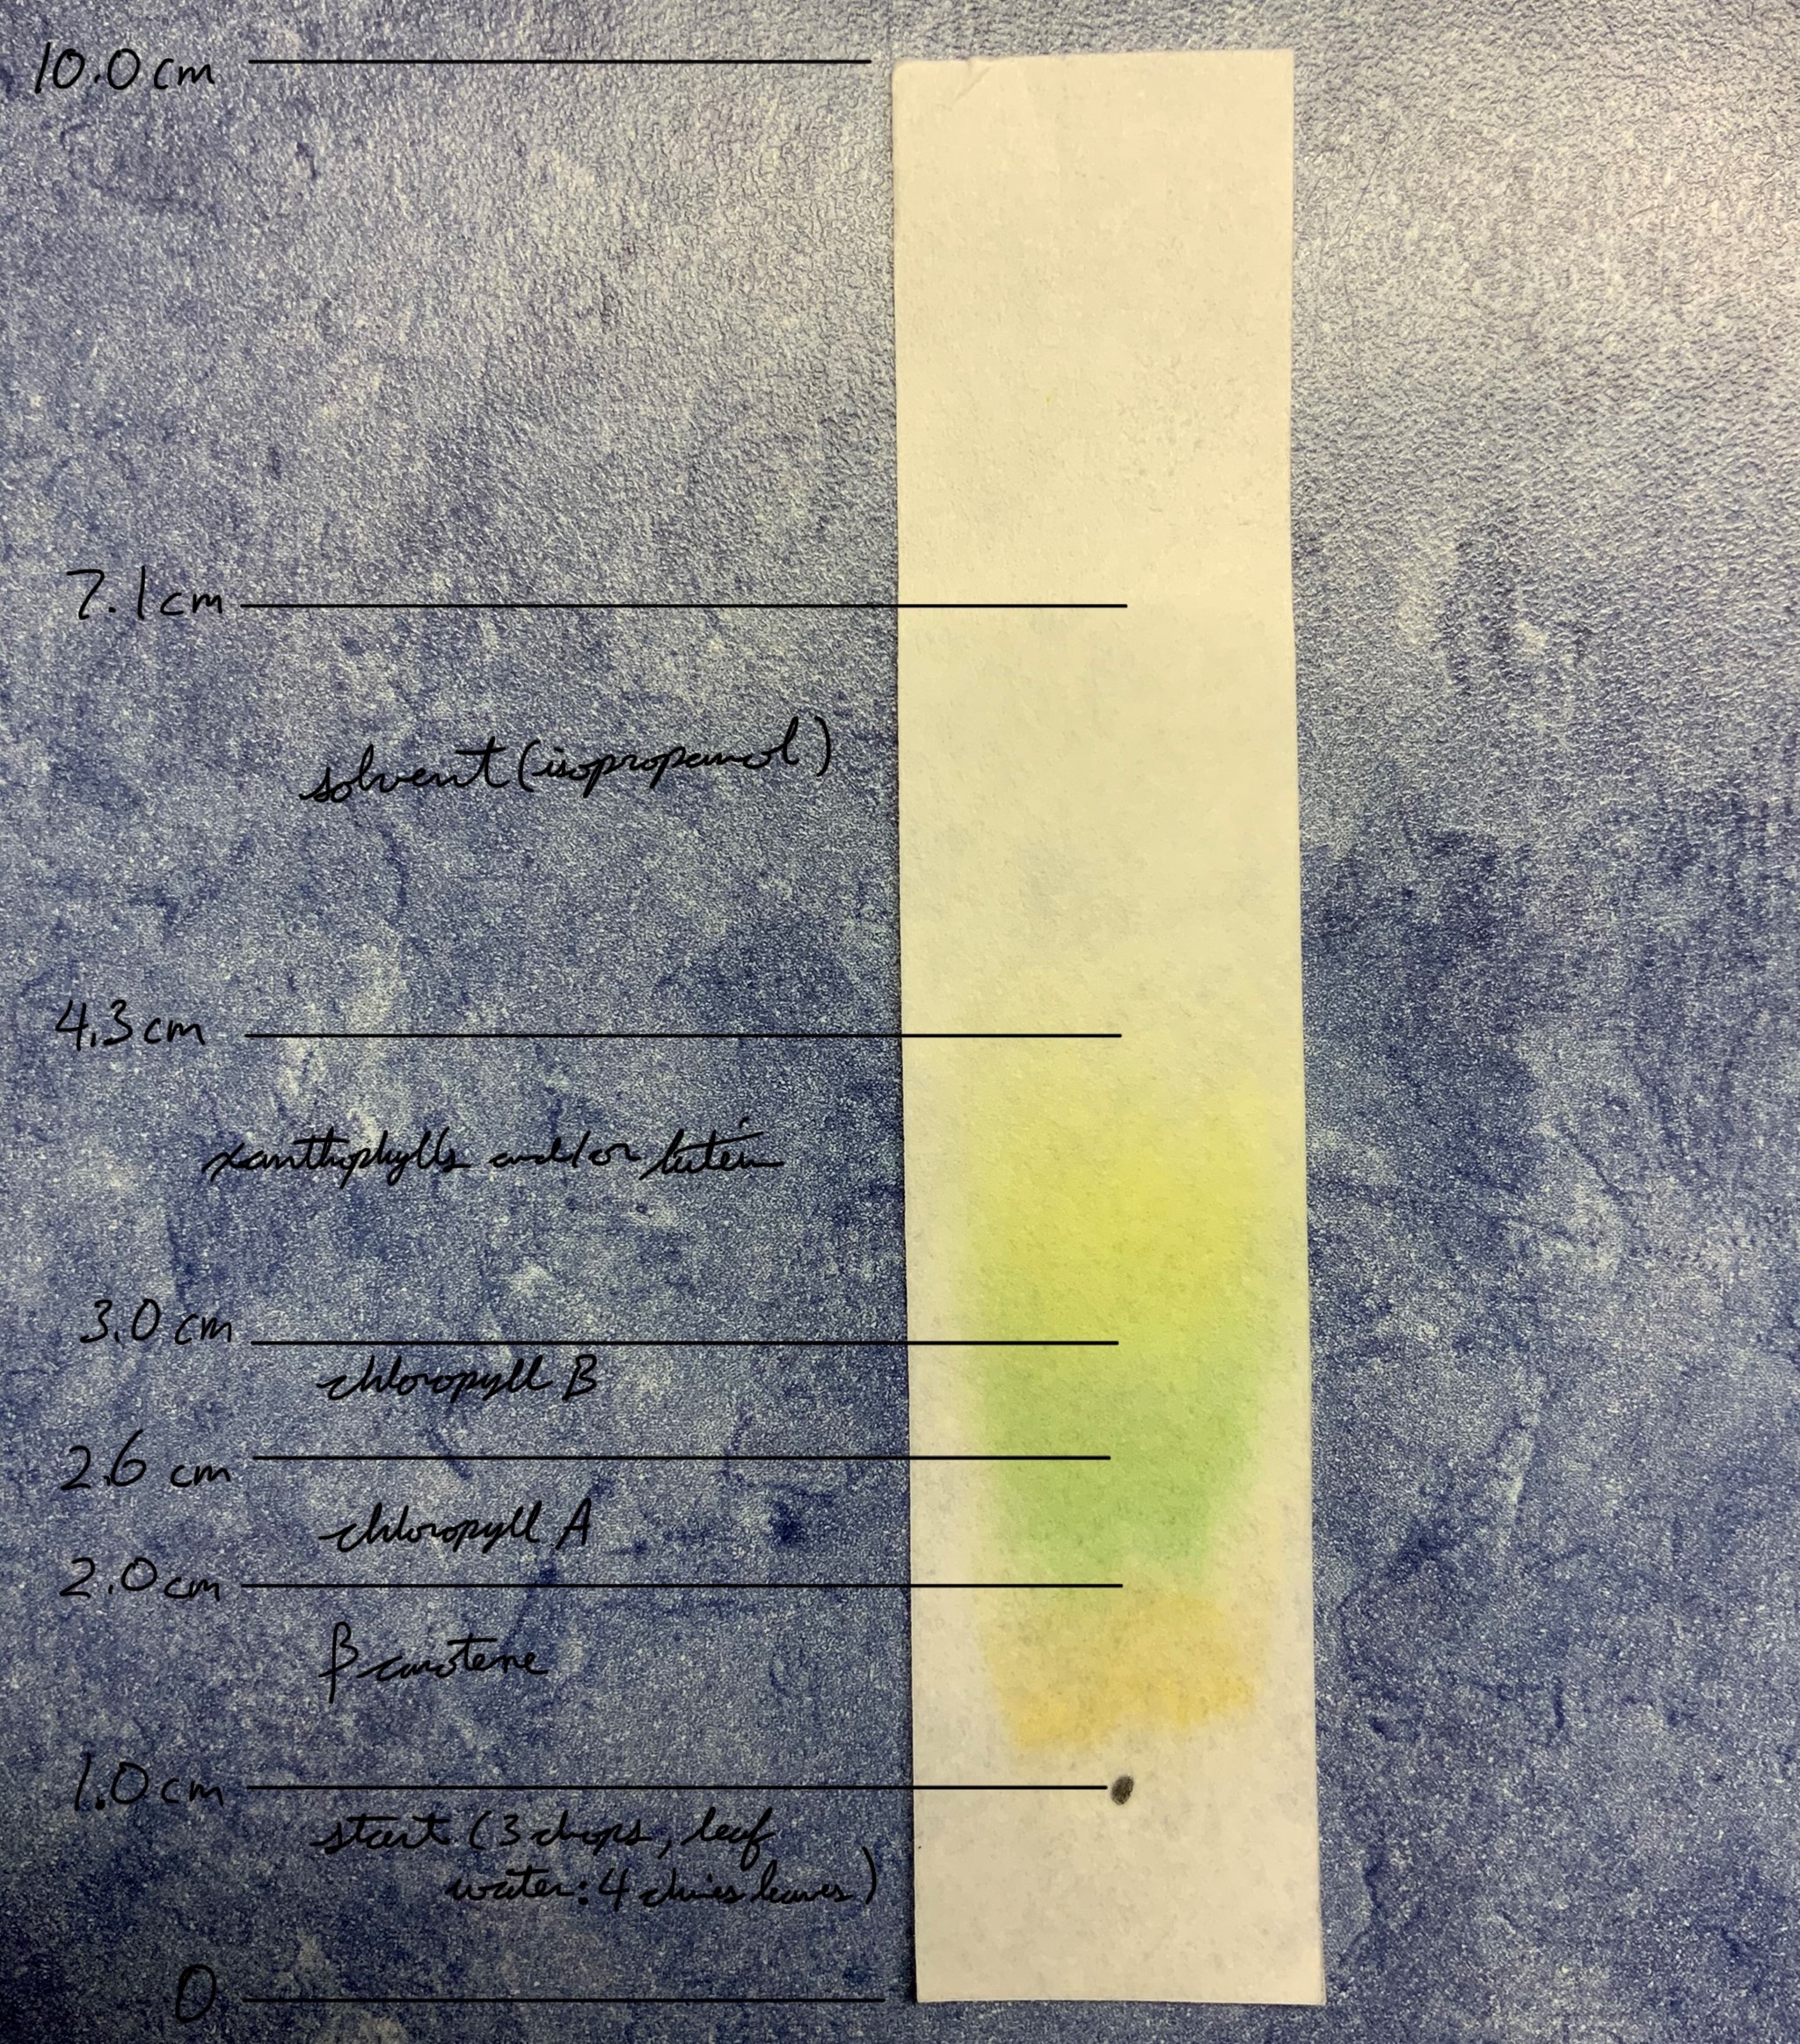 10.0 cm
7.1 cm
solvent (isopropanol)
4.3 cm
xanthophylls and/or lutein
3.0 cm
chloropyll B
2.6 cm
chloropyll A
2.0 cm
β carotene
1.0 cm
start (3 drops, leaf
water: 4 chives leaves)
0